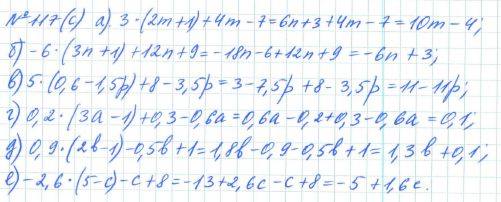 № 117(с) а) 3·(2m+1)+4m-7=6n+3+4m-7=10m-4;
б) -6·(3n+1)+12n+9=-18n-6+12n+9=-6n+3;
в) 5·(0,6-1,5p)+8-3,5p=3-7,5p+8-3,5p=11-11p;
г) 0,2·(3а-1)+0,3-0,6а=0,6а-0,2+0,3-0,6а=0,1;
д) 0,9·(2в-1)-0,5в+1=1,8в-0,9-0,5в+1=1,3в+0,1;
е) -2,6·(5-с)-с+8=-13+2,6с-с+8=-5+1,6с.